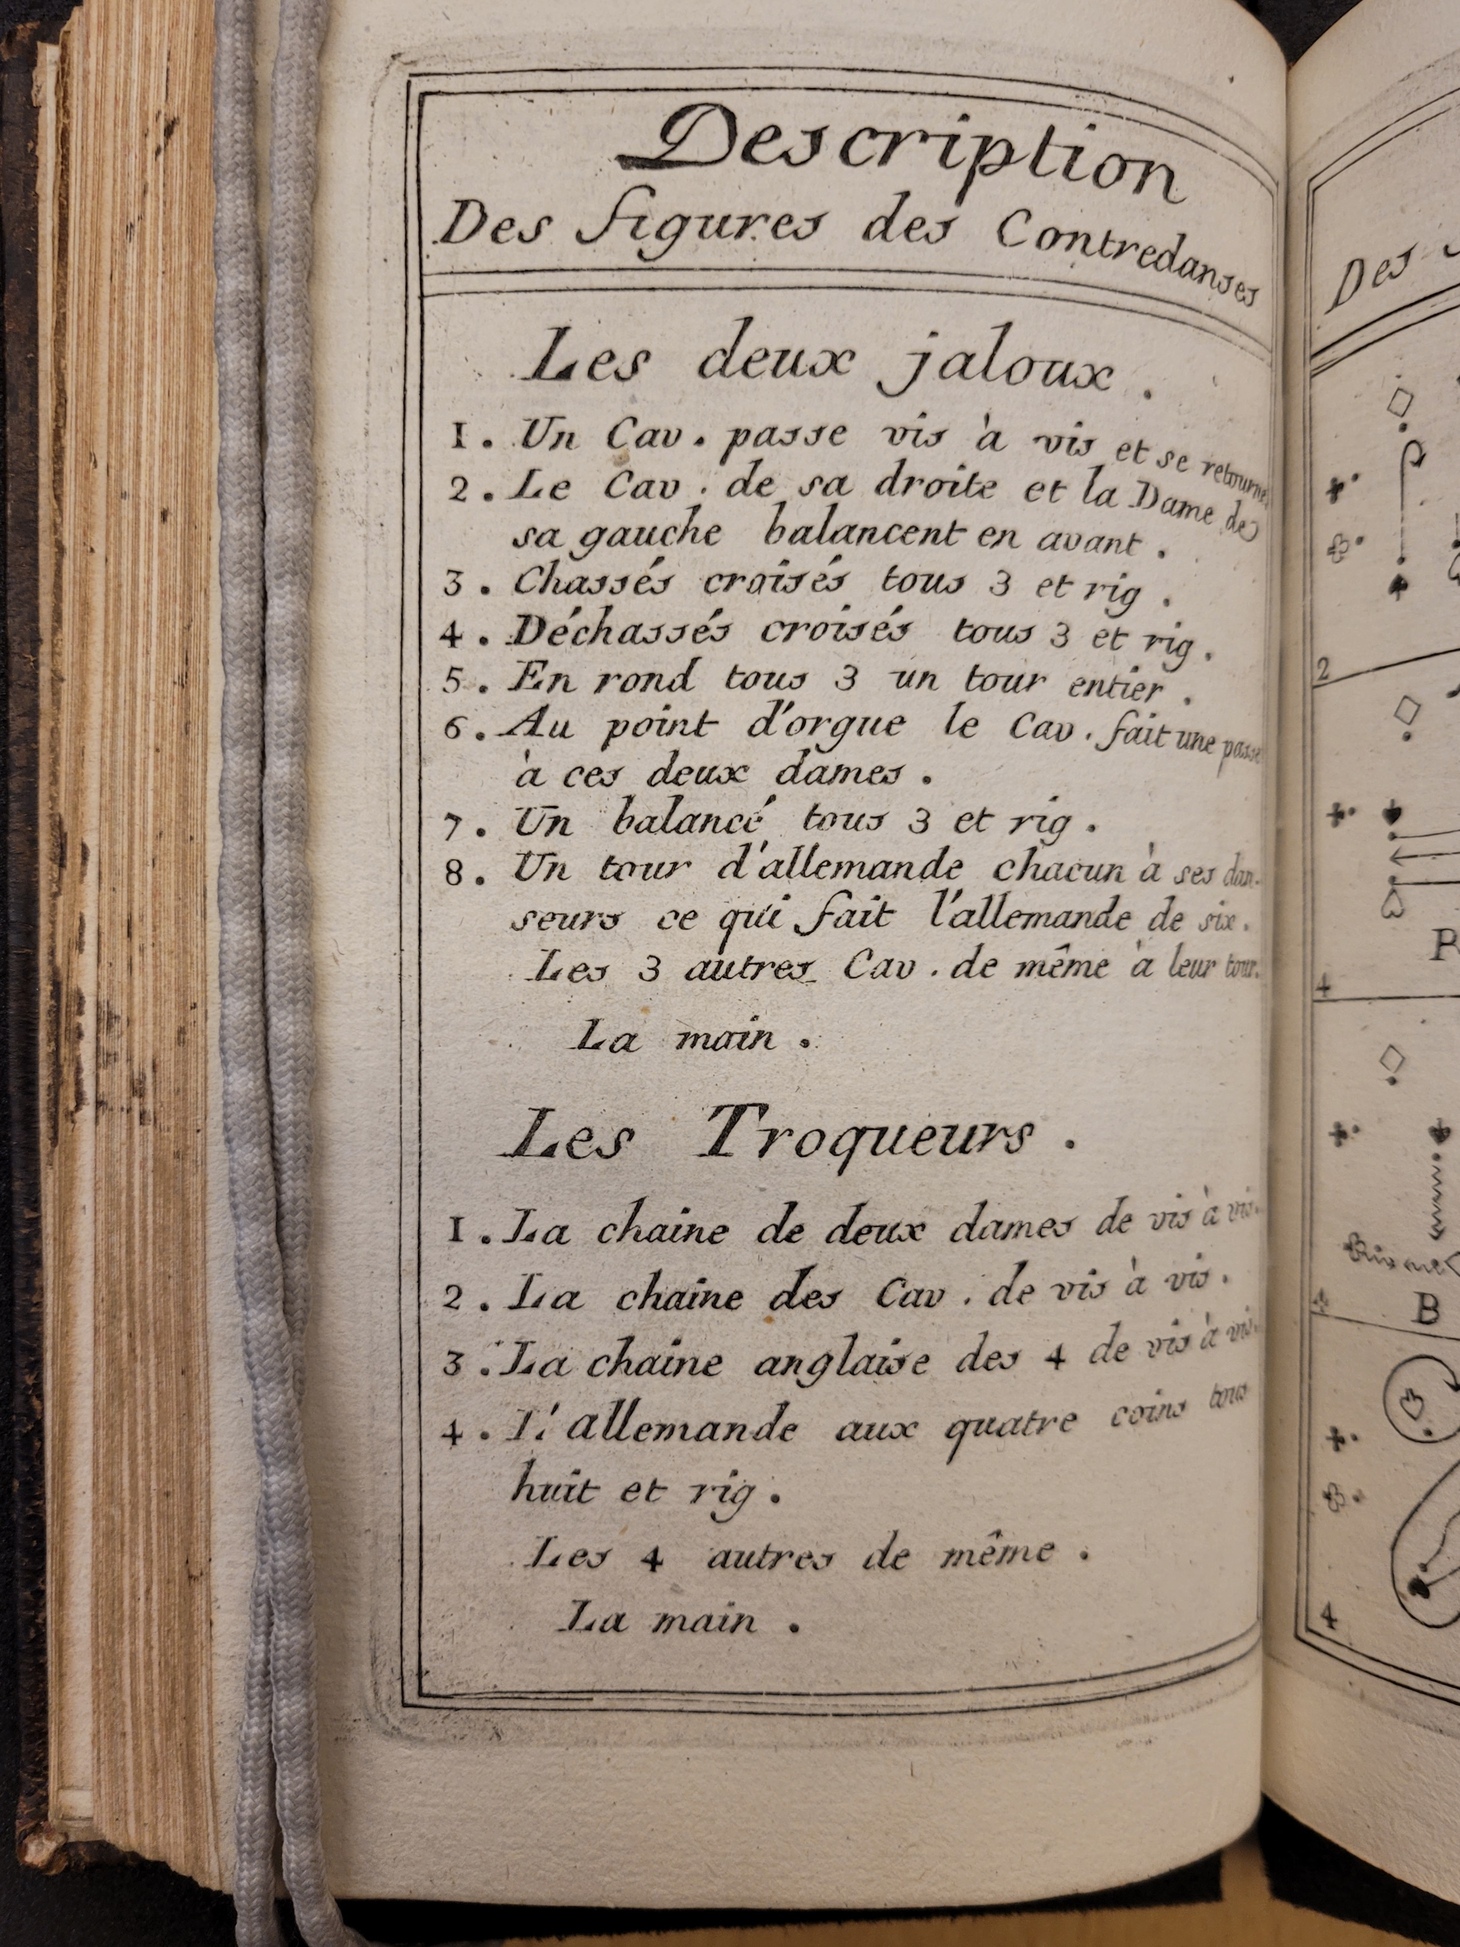 Description
Des figures des Contredanses
Les deux jaloux.
1. Un Cav. passe vis à vis et se retourne
2. Le Cav. de sa droite et la Dame de
sa gauche balancent en avant.
3. Chassés croisés tous 3 et rig.
4. Déchassés croisés tous 3 et rig.
5. En rond tous 3 un tour entier.
6. Au point d'orgue le Cav. fait une passe
à ces deux dames.
7. Un balancé tous 3 et rig.
8. Un tour d'allemande chacun à ses dan-
seurs ce qui fait l'allemande de six.
Les 3 autres Cav. de même à leur tour.
La main.
Les Troqueurs.
1. La chaine de deux dames de vis à vis.
2. La chaine des Cav. de vis à vis.
3. La chaine anglaise des 4 de vis à vis.
4. L'allemande aux quatre coins tous
huit et rig.
Les 4 autres de même.
La main.
Des
2
4
4
B
4